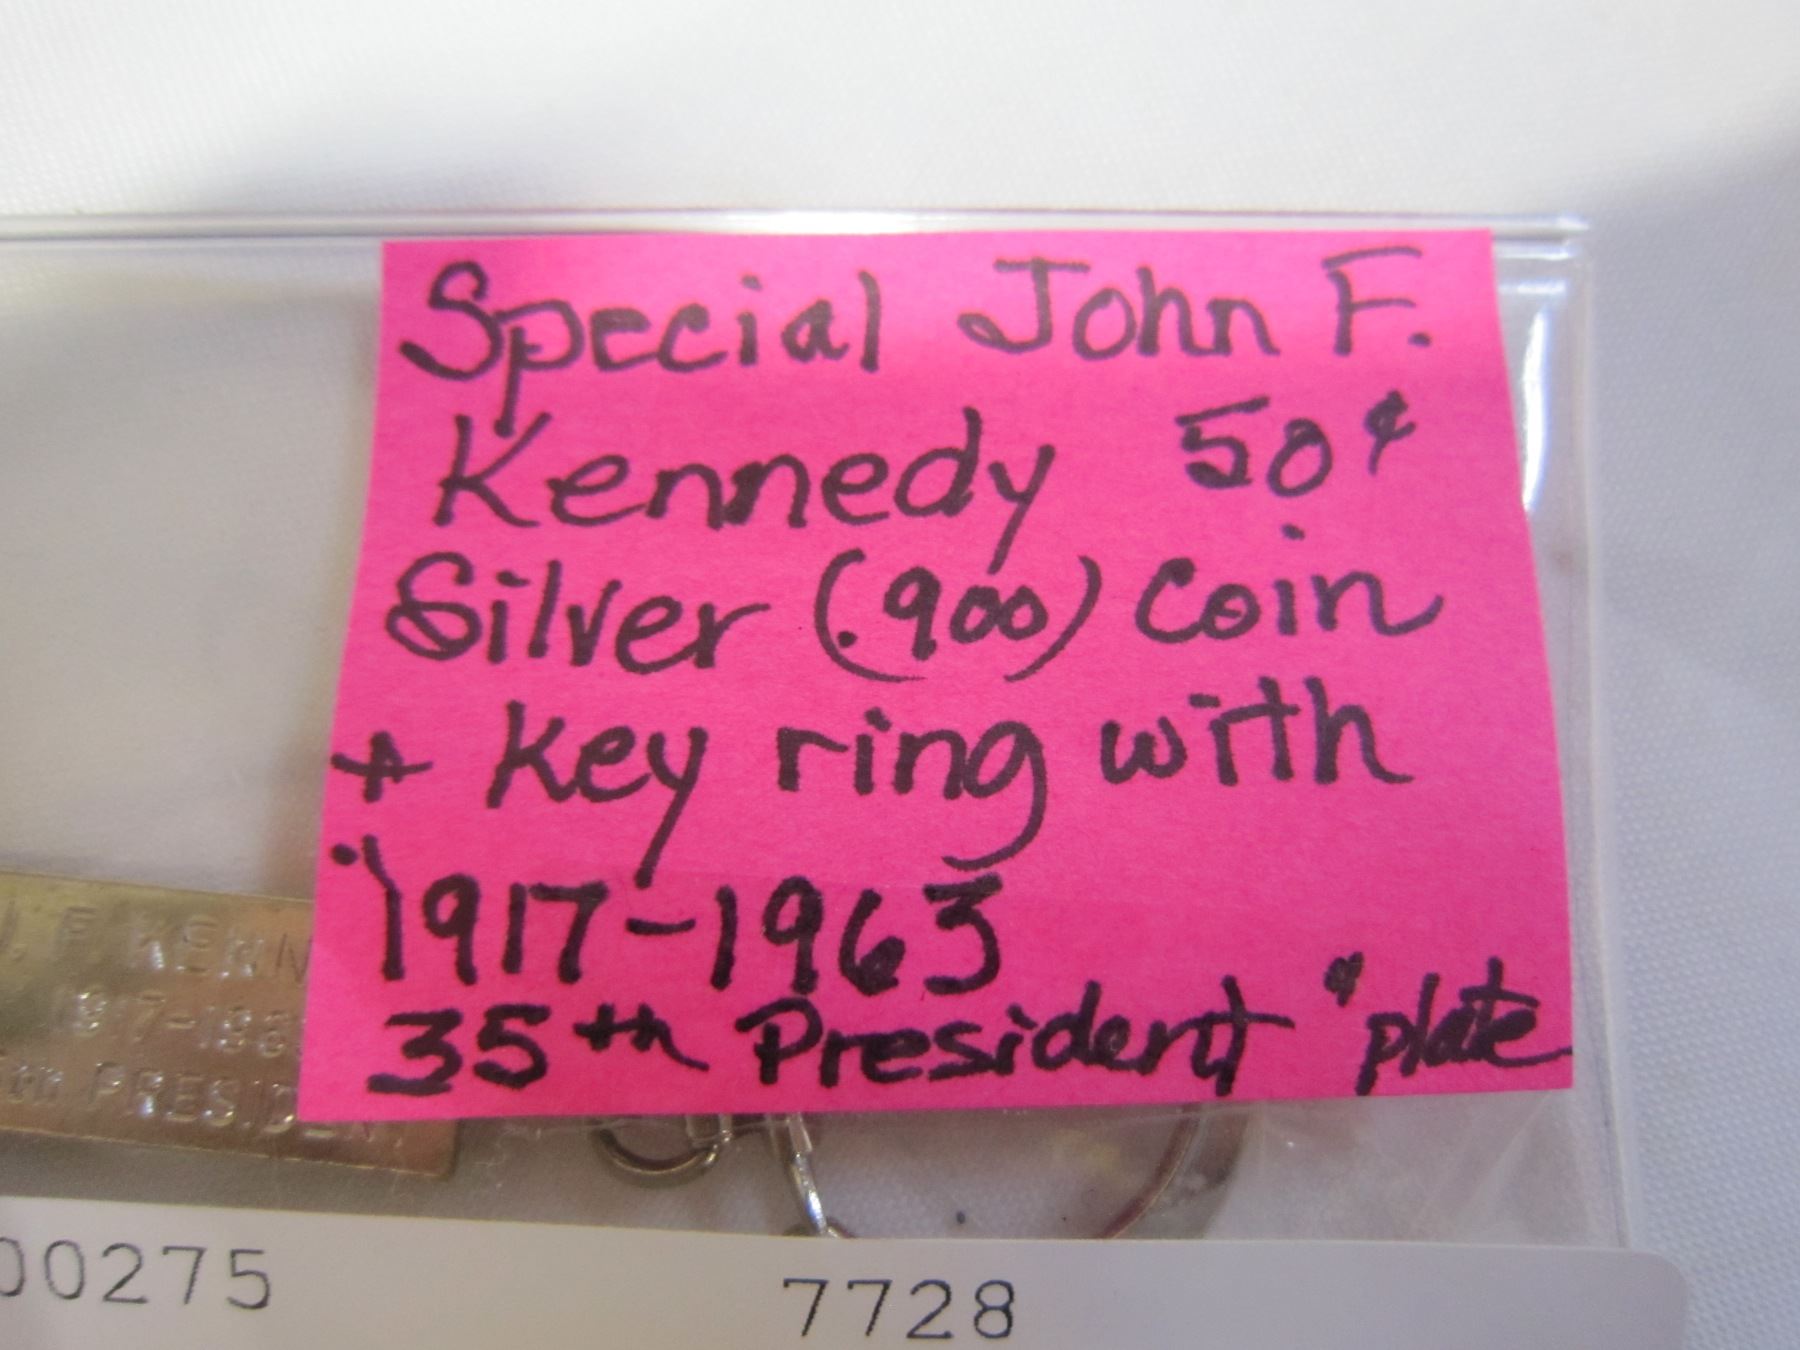 Special John F.
Kennedy 50¢
Silver (.900) Coin
+ Key ring with
1917-1963
35th President " plate
J. F. KENN
1917-196
th PRESIDENT
00275
7728